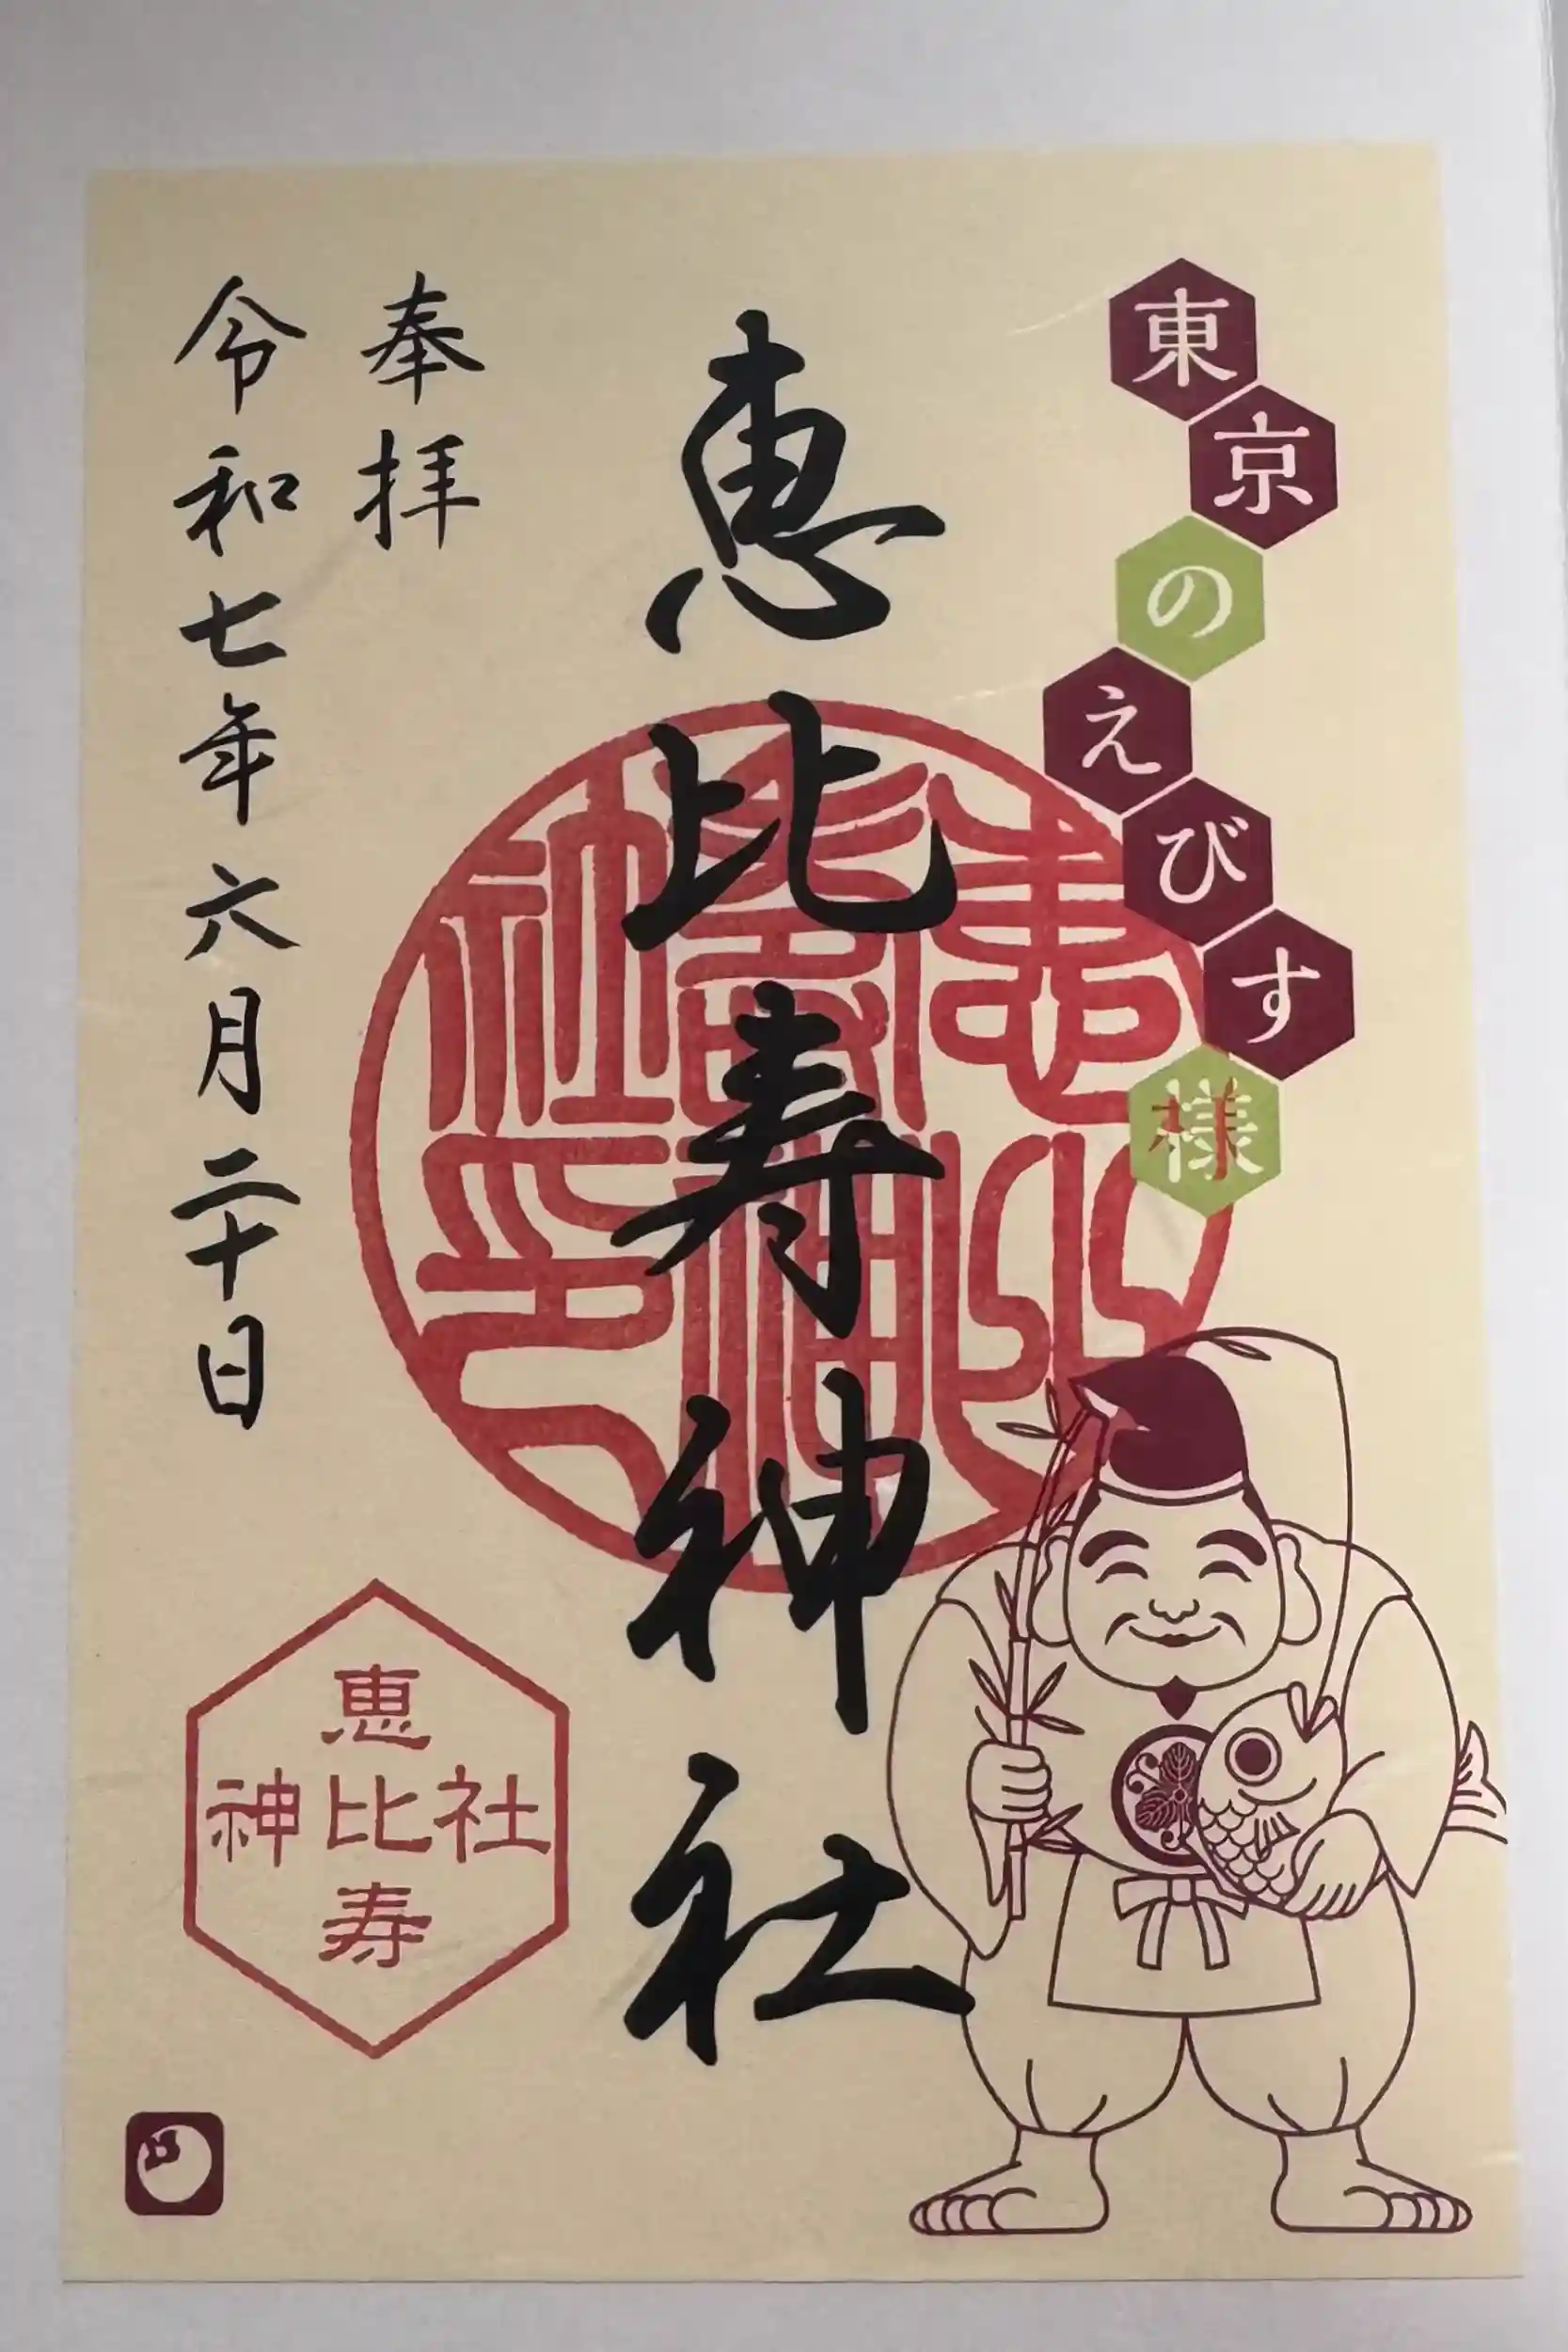 東京のえびす様
恵比寿神社
奉拝
令和七年六月二十日
恵比寿
神社